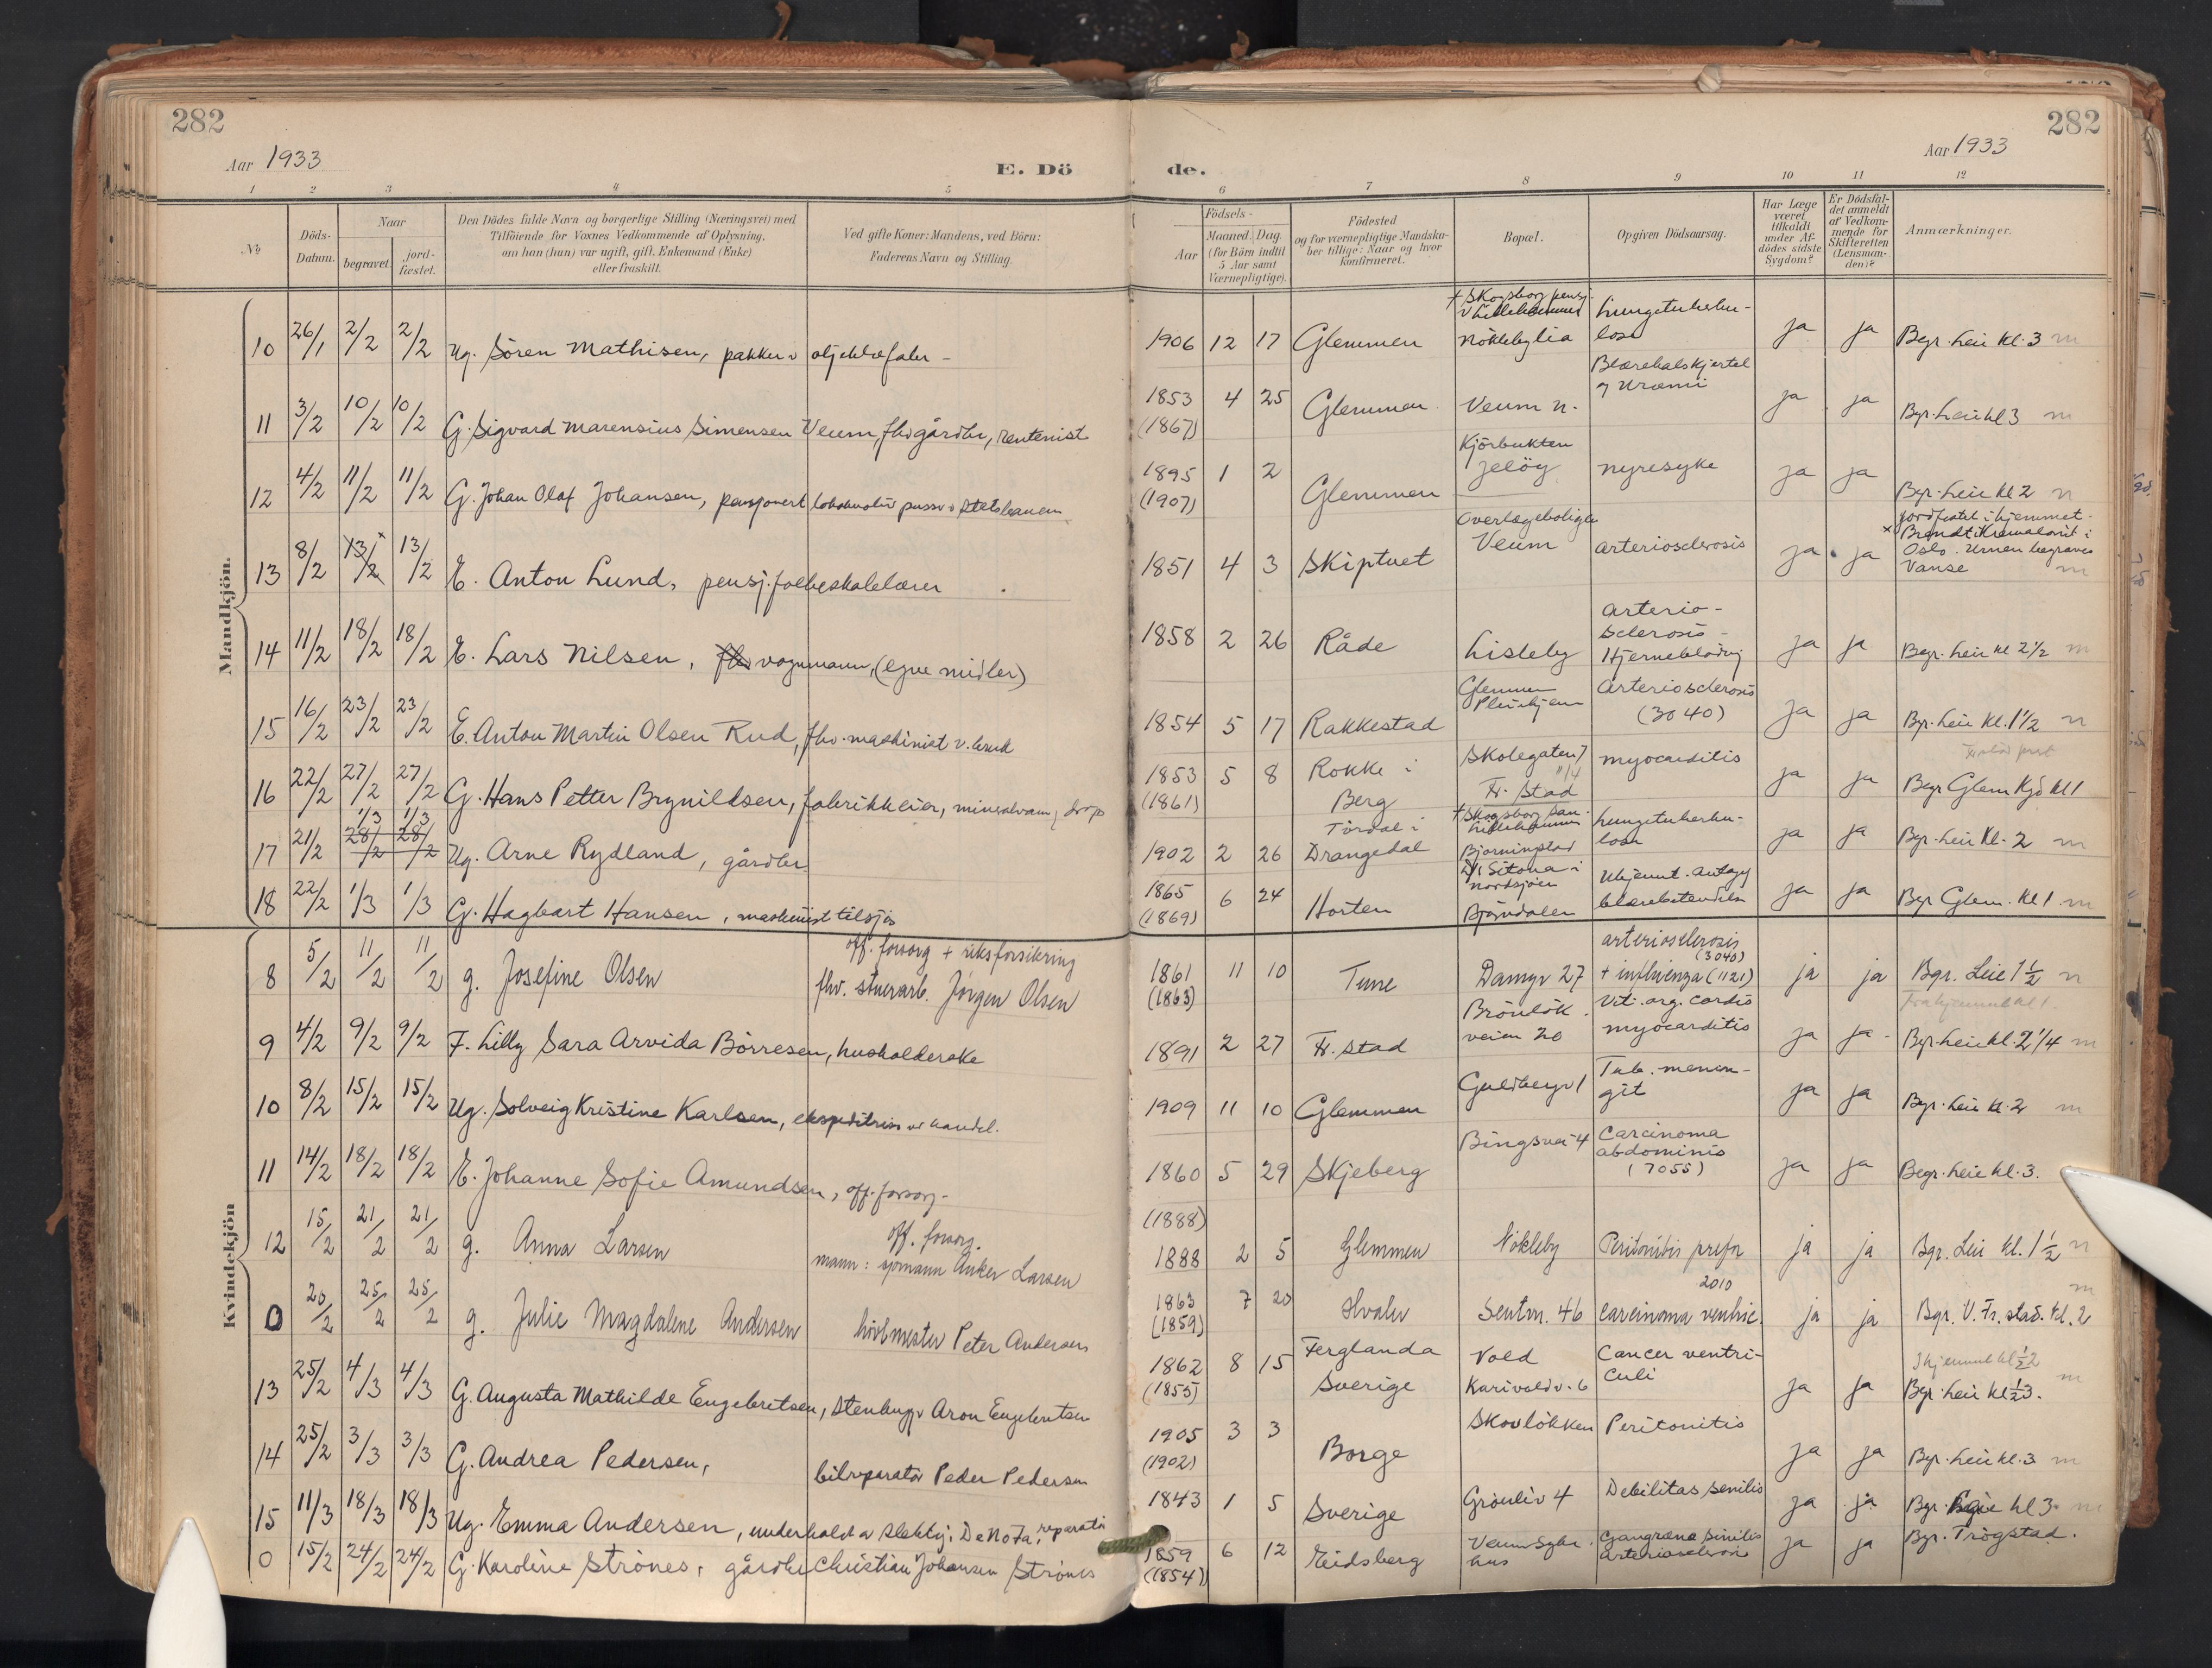 282
282
Aar 1933
E. Dö
de.
Aar 1933
1 2 3 4 5 6 7 8 9 10 11 12
No
Döds-Datum.
Naar
begravet.
jord-fæstet.
Den Dödes fulde Navn og borgerlige Stilling (Næringsvei) med
Tilföiende for Voxnes Vedkommende af Oplysning,
om han (hun) var ugift, gift, Enkemand (Enke)
eller fraskilt.
Ved gifte Koner: Mandens, ved Börn:
Faderens Navn og Stilling.
Födsels-
Aar
Maaned. Dag.
(for Börn indtil
5 Aar samt
Værnepligtige).
Födested
og for værnepligtige Mandska-
ber tillige: Naar og hvor
konfirmeret.
Bopæl.
Opgiven Dödsaarsag.
Har Læge
været
tilkaldt
under Af-
dödes sidste
Sygdom?
Er Dödsfal-
det anmeldt
af Vedkom-
mende for
Skifteretten
(Lensman-
den)?
Anmærkninger.
Mandkjön.
10 26/1 2/2 2/2 Ug. Sören Mathisen, pakker v 1906 12 17 Glemmen Nöklebylia lungetuberku- ja ja Begr. Leie kl. 3 m
11 3/2 10/2 10/2 G. Sigvard Marensius Simensen Veum, fhv gårdbr, rentenist 1853 (1867) 4 25 Glemmen Veum n. Blærehalskjertel og Uræmi ja ja Bgr. Leie kl 3 m
12 4/2 11/2 11/2 G. Johan Olaf Johansen, pensjonert lokomotiv pusser v Statsbanen 1895 (1907) 1 2 Glemmen Kjörbukten Jelöy nyresyke ja ja Bgr. Leie kl 2 m
13 8/2 13/2 13/2 E. Anton Lund, pensj. folkeskolelærer 1851 4 3 Skiptvet Overlægeboligen Veum arteriosclerosis ja ja jordfestet i hjemmet. × Brendt Krematoriet i Oslo. Urnen begraves Vanse m
14 11/2 18/2 18/2 E. Lars Nilsen, fhv vognmann, (egne midler) 1858 2 26 Råde Lisleby Arterio-sclerosis - Hjerneblödnig ja ja Begr. Leie kl 2 1/2 m
15 16/2 23/2 23/2 E. Anton Martin Olsen Rud, fhv. maskinist v. bruk 1854 5 17 Rakkestad Glemmen Pleiehjem Arteriosclerosis (3040) ja ja Bgr. Leie kl. 1 1/2 m
16 22/2 27/2 27/2 G. Hans Petter Brynildsen, fabrikkeier, mineralvann 1853 (1861) 5 8 Rokke i Berg Skolegaten 7 Fr. stad myocarditis ja ja Begr Glem Kjö kl 1
17 21/2 28/2 28/2 1/3 1/3 Ug. Arne Rydland, gårdbr 1902 2 26 Tördal i Drangedal lungetuberku- ja ja Bgr. Leie kl. 2 m
18 22/2 1/3 1/3 G. Hagbart Hansen, maskinist tilsjøs 1865 (1869) 6 24 Horten Nordsjöen Björndalen Ukjennt. Antagel ja ja Bgr Glem. kl 1 m
Kvindekjön
8 5/2 11/2 11/2 g. Josefine Olsen off. forsorg + riksforsikring fhv. stuerarb. Jörgen Olsen 1861 (1863) 11 10 Tune Damyr 27 arteriosclerosis (3040) + influenza (1121) ja ja Bgr. Leie 1 1/2 m
9 4/2 9/2 9/2 F. Lilly Sara Arvida Börresen, husholderske 1891 2 27 Fr. stad veien 20 Vit. org. cordis myocarditis ja ja Bgr. Leie kl. 2 1/4 m
10 8/2 15/2 15/2 Ug. Solveig Kristine Karlsen, ekspeditrise ved handel. 1909 11 10 Glemmen Guldbergv 1 Tub. menen-git ja ja Bgr. Leie kl. 2 m
11 14/2 18/2 18/2 E. Johanne Sofie Amundsen, off. forsorg. 1860 5 29 Skjeberg Bingsvei 4 Carcinoma abdominis (7055) ja ja Begr. Leie kl. 3.
12 15/2 21/2 21/2 g. Anna Larsen off. forsorg. mann: sjømann Anker Larsen (1888) 1888 2 5 Glemmen Nökleby Peritonitis ja ja Bgr. Leie kl. 1 1/2 m
0 20/2 25/2 25/2 g. Julie Magdalene Andersen hövlmester Peter Andersen 1863 (1859) 7 20 Hvaler Sentrv. 46 2010 carcinoma ventric. ja ja Bgr. V. Fr. stad. kl. 2 m
13 25/2 4/3 4/3 G. Augusta Mathilde Engebretsen, stenhugger Aron Engebretsen 1862 (1855) 8 15 Ferglanda Sverige Vold Karivoldv. 6 Cancer ventri-culi ja ja I hjemmet kl 1/2 2 Bgr. Leie kl 1/2 3. m
14 25/2 3/3 3/3 G. Andrea Pedersen, bilreparatör Peder Pedersen 1905 (1902) 3 3 Borge Skovlökken Peritonitis ja ja Bgr. Leie kl. 3 m
15 11/3 18/3 18/3 Ug. Emma Andersen, underholdt av slektn; De No Fa, reparatör 1843 1 5 Sverige Grönliv 4 Debilitas senilis ja ja Bgr. Leie kl 3. m
0 15/2 24/2 24/2 G. Karoline Strönes, gårdbr Christian Johansen Strönes 1859 (1854) 6 12 Eidsberg Veum Sykehus Gangræna senilis arteriosclerosis ja ja Bgr. Trögstad.